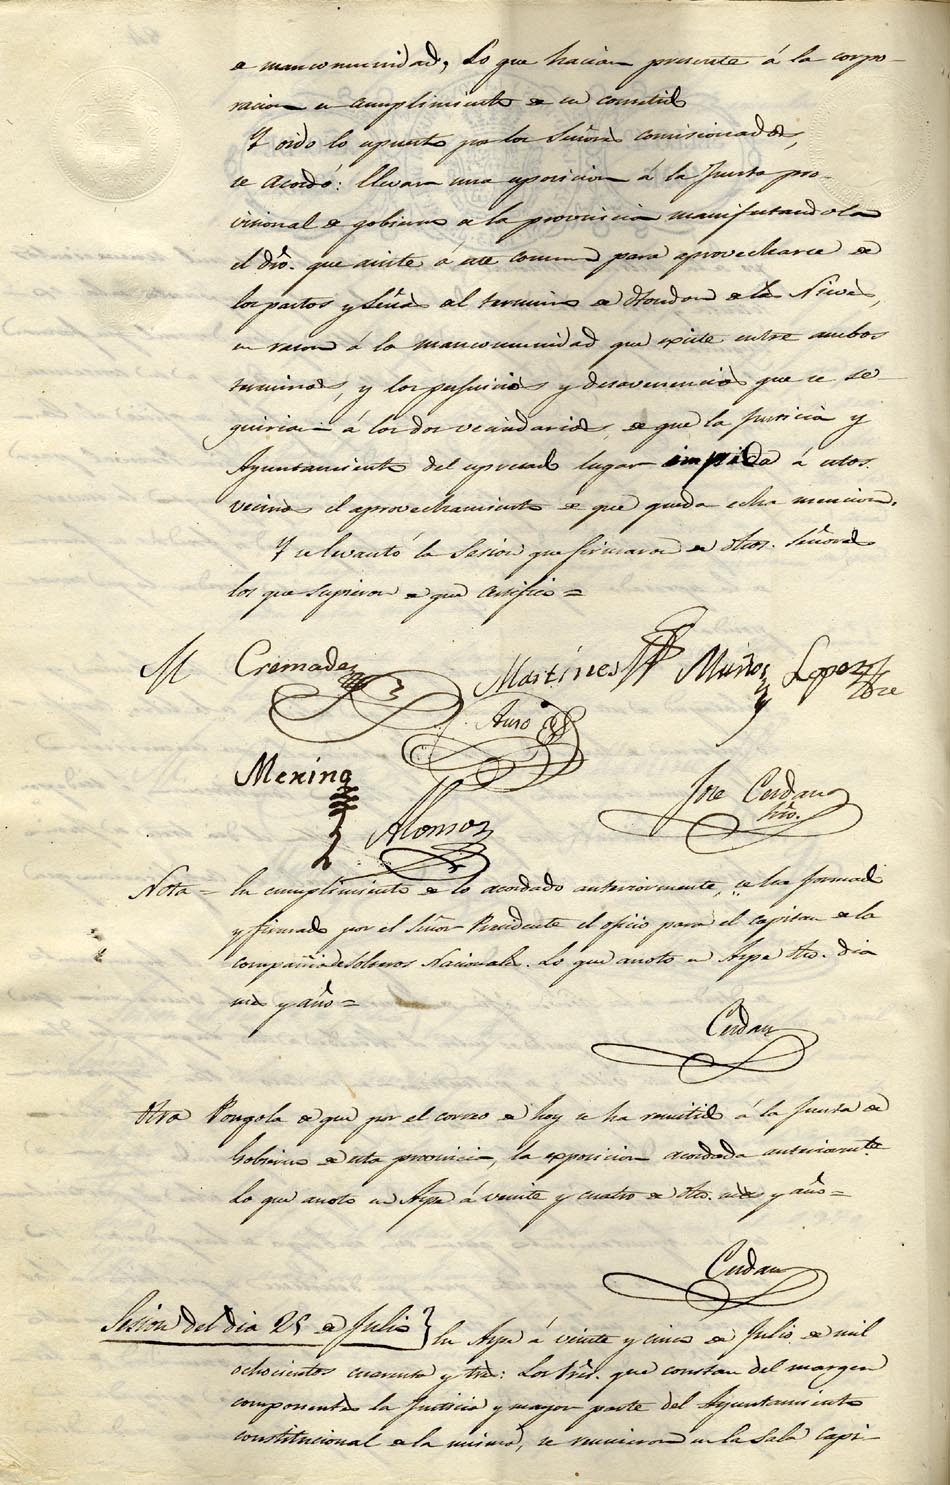 de mancomunidad, Lo que hacian presente á la corpo-
racion en cumplimiento de su cometido
Y oido lo espuesto por los Señores comisionados,
se acordó: llevar una esposicion á la Junta pro-
visional de gobierno de la provincia manifestandola
el dro. que asiste á este comun para aprovecharse de
los pastos y leñas del termino de Hondon de las Nieves,
en razon á la mancomunidad que existe entre ambos
terminos, y los perjuicios y desavenencias que se se-
guirian á los dos vecindarios, de que la Justicia y
Ayuntamiento del espresado lugar impida á estos
vecinos el aprovechamiento de que queda echa mencion.
Y se levantó la Sesion que firmaron de dhos. Señores
los que supieron de que certifico =
M Cremades Martínes Muñoz Lopez
Auro
Merino
Alonso
Jose Cerdan
Srio.
Nota = En cumplimiento de lo acordado anteriormente, se ha formado
y firmado por el Señor Presidente el oficio para el capitan de la
compañia de Nacionales. Lo que anoto en Aspe dho. dia
mes y año =
Cerdan
Otra Pongola de que por el correo de hoy se ha remitido á la Junta de
Gobierno de esta provincia, la exposicion acordada anteriormte.
Lo que anoto en Aspe á veinte y cuatro de dho. mes y año =
Cerdan
Sesion del dia 25 de Julio } En Aspe á veinte y cinco de Julio de mil
ochocientos cuarenta y tres: Los Sres. que constan del margen
componentes la Justicia y mayor parte del Ayuntamiento
constitucional de la misma, se reunieron en la Sala Capi-